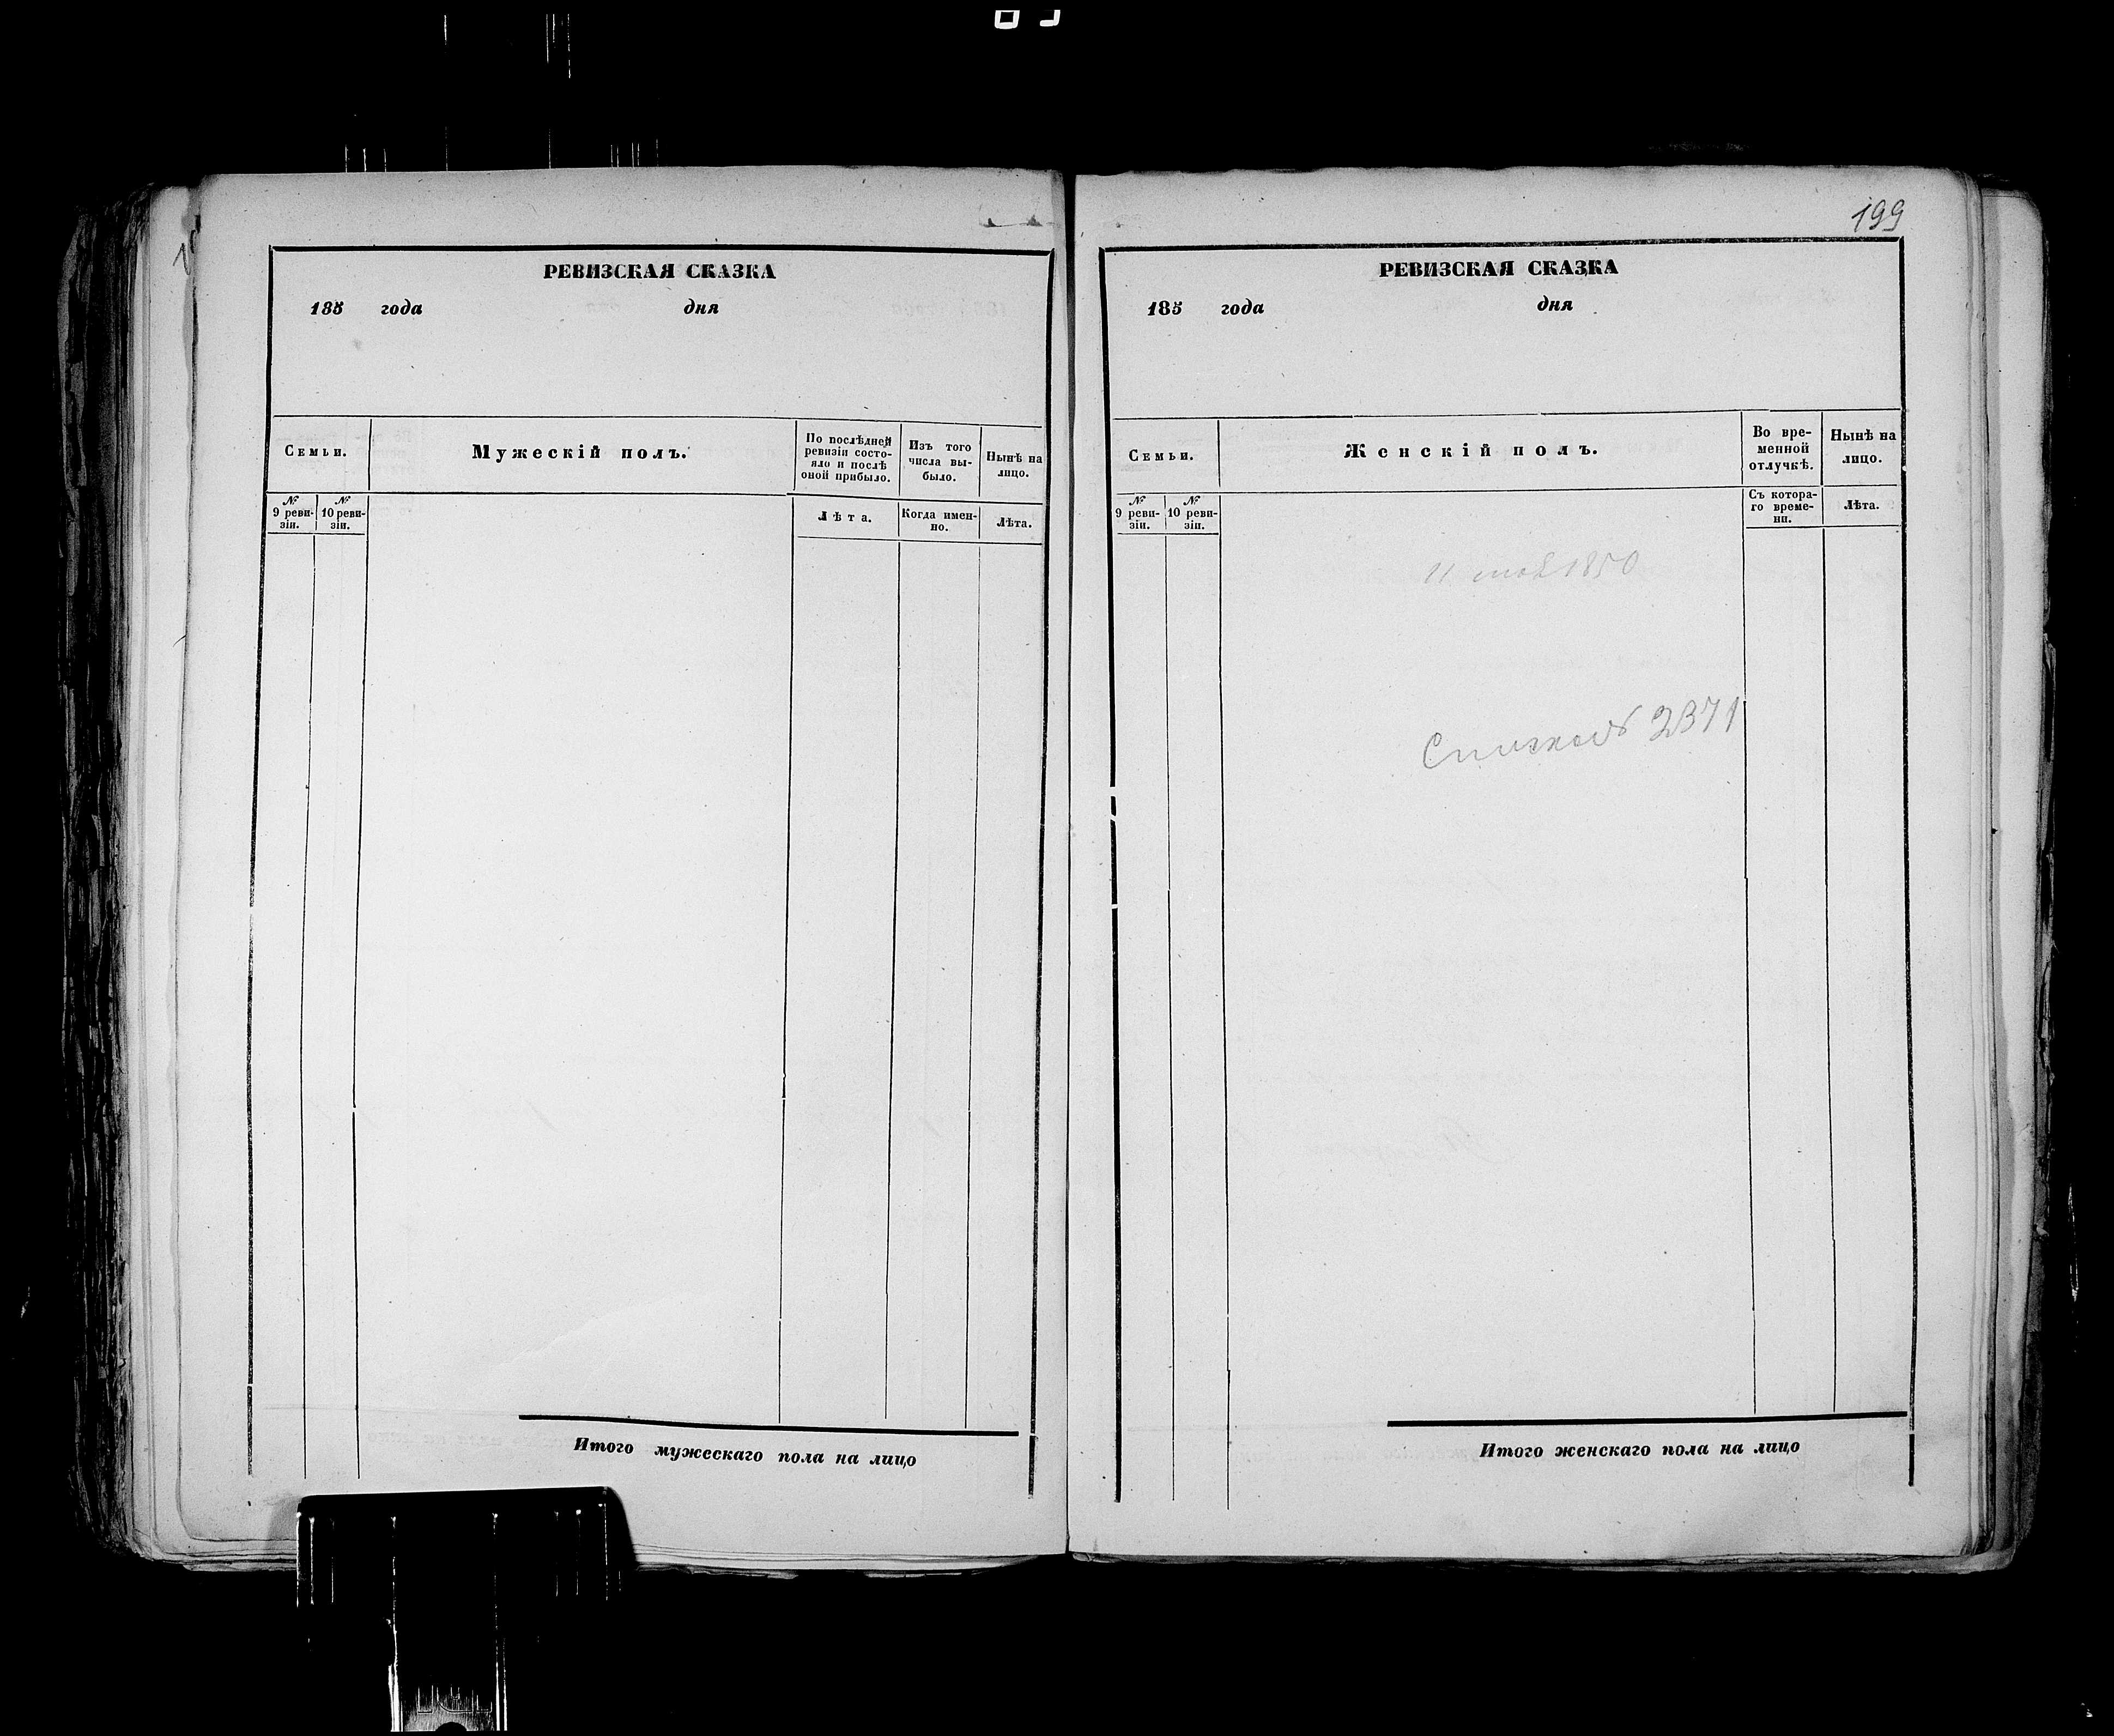 РЕВИЗСКАЯ СКАЗКА
185 года дня
Семьи.
Мужескій полъ.
По послѣдней
ревизіи состо-
яло и послѣ
оной прибыло.
Изъ того
числа вы-
было.
Нынѣ на
лицо.
№
9 реви-
зіи.
№
10 реви-
зіи.
Лѣта.
Когда имен-
но.
Лѣта.
Итого мужескаго пола на лицо
199
РЕВИЗСКАЯ СКАЗКА
185 года дня
Семьи.
Женскій полъ.
Во вре-
менной
отлучкѣ.
Нынѣ на
лицо.
№
9 реви-
зіи.
№
10 реви-
зіи.
Съ котора-
го време-
ни.
Лѣта.
11 1850
2371
Итого женскаго пола на лицо